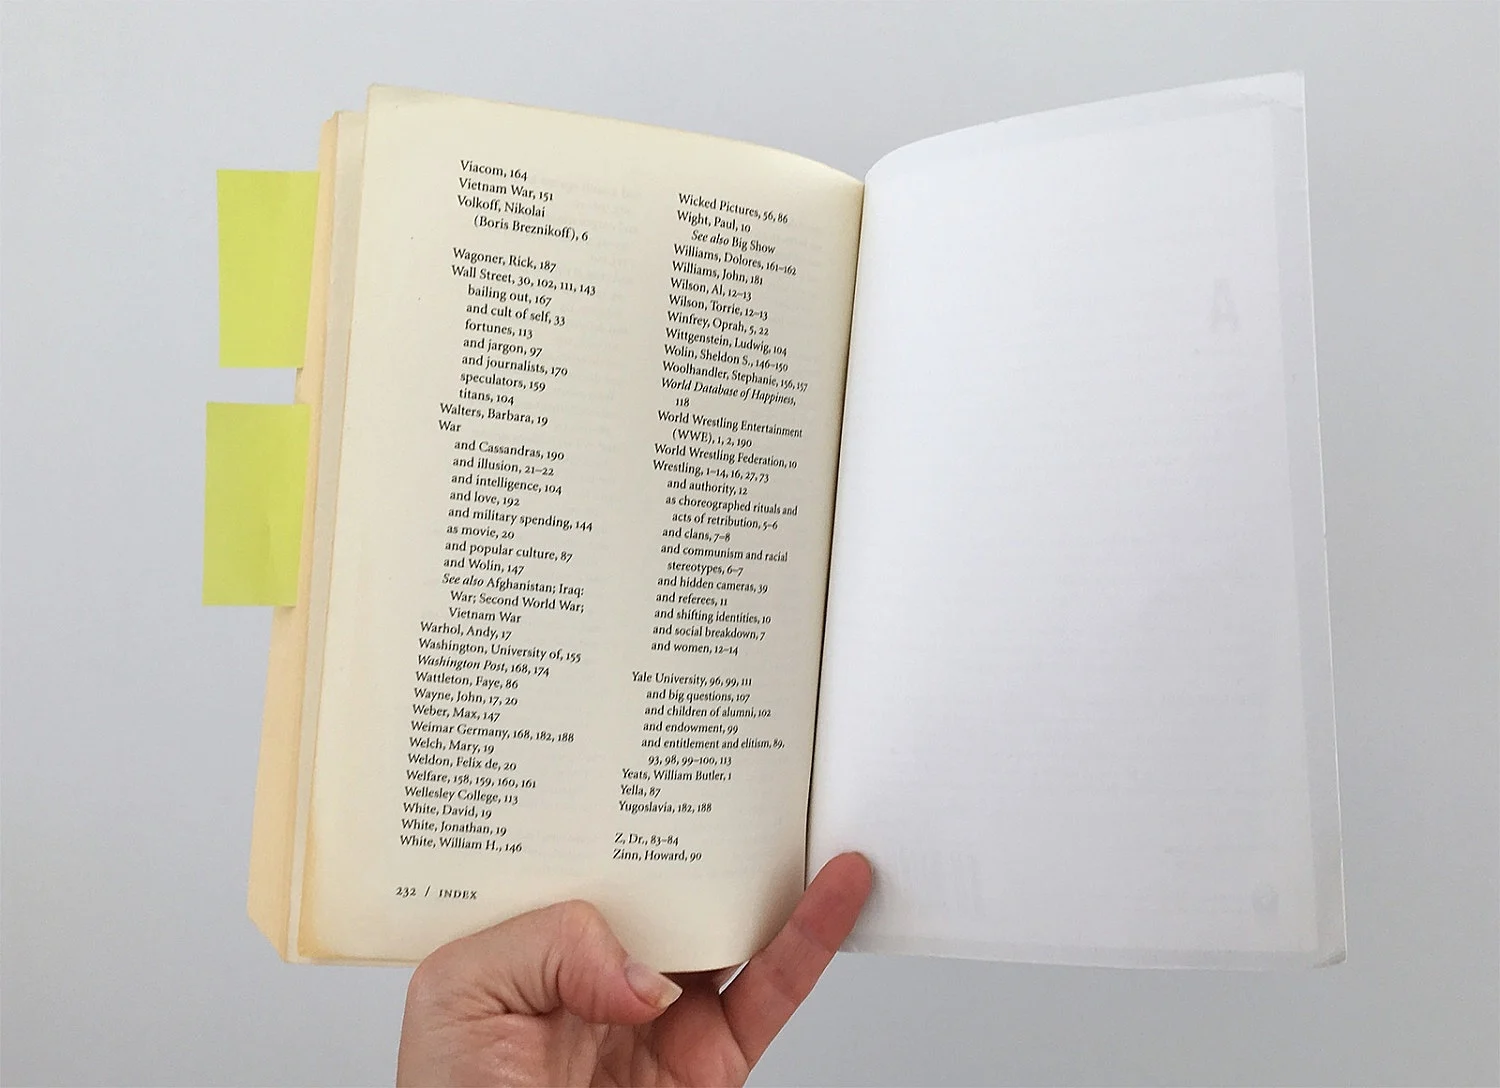 Viacom, 164
Vietnam War, 151
Volkoff, Nikolai
(Boris Breznikoff), 6
Wagoner, Rick, 187
Wall Street, 30, 102, 111, 143
bailing out, 167
and cult of self, 33
fortunes, 113
and jargon, 97
and journalists, 170
speculators, 159
titans, 104
Walters, Barbara, 19
War
and Cassandras, 190
and illusion, 21–22
and intelligence, 104
and love, 192
and military spending, 144
as movie, 20
and popular culture, 87
and Wolin, 147
See also Afghanistan; Iraq:
War; Second World War;
Vietnam War
Warhol, Andy, 17
Washington, University of, 155
Washington Post, 168, 174
Wattleton, Faye, 86
Wayne, John, 17, 20
Weber, Max, 147
Weimar Germany, 168, 182, 188
Welch, Mary, 19
Weldon, Felix de, 20
Welfare, 158, 159, 160, 161
Wellesley College, 113
White, David, 19
White, Jonathan, 19
White, William H., 146
Wicked Pictures, 56, 86
Wight, Paul, 10
See also Big Show
Williams, Dolores, 161–162
Williams, John, 181
Wilson, Al, 12–13
Wilson, Torrie, 12–13
Winfrey, Oprah, 5, 22
Wittgenstein, Ludwig, 104
Wolin, Sheldon S., 146–150
Woolhandler, Stephanie, 156, 157
World Database of Happiness,
118
World Wrestling Entertainment
(WWE), 1, 2, 190
World Wrestling Federation, 10
Wrestling, 1–14, 16, 27, 73
and authority, 12
as choreographed rituals and
acts of retribution, 5–6
and clans, 7–8
and communism and racial
stereotypes, 6–7
and hidden cameras, 39
and referees, 11
and shifting identities, 10
and social breakdown, 7
and women, 12–14
Yale University, 96, 99, 111
and big questions, 107
and children of alumni, 102
and endowment, 99
and entitlement and elitism, 89,
93, 98, 99–100, 113
Yeats, William Butler, 1
Yella, 87
Yugoslavia, 182, 188
Z, Dr., 83–84
Zinn, Howard, 90
232 / INDEX